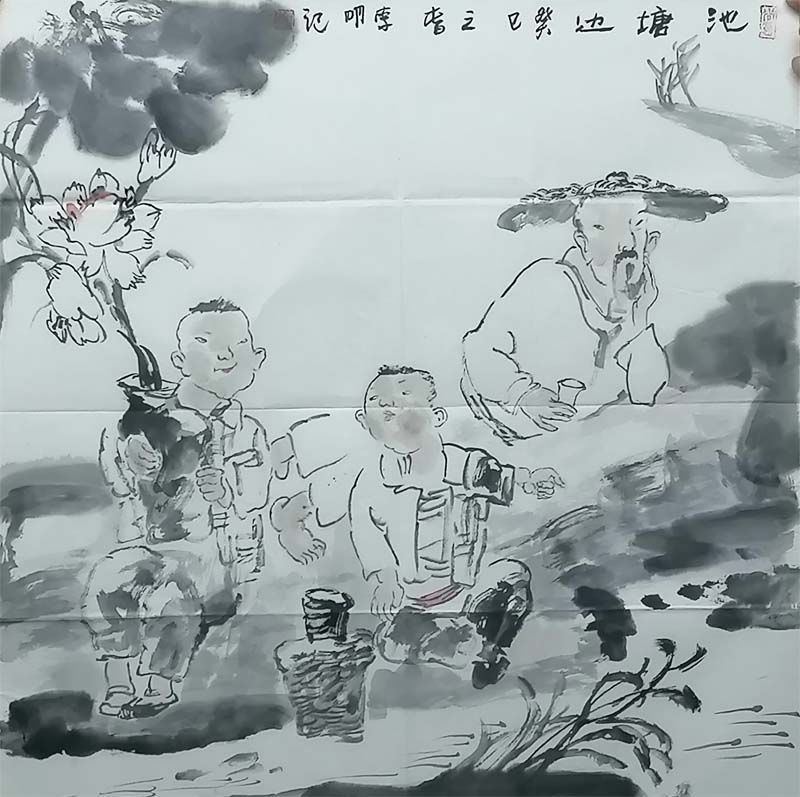 池塘边癸巳之春李明记